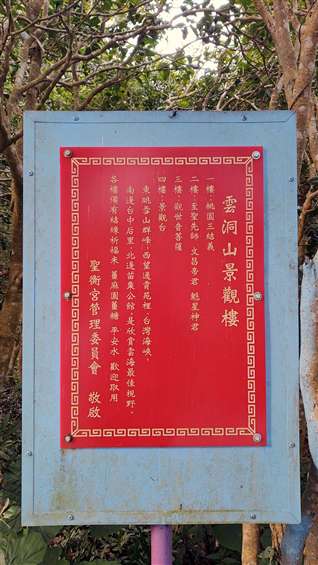 雲洞山景觀樓
一樓：桃園三結義
二樓：至聖先師．文昌帝君．魁星神君
三樓：觀世音菩薩
四樓：景觀台
東眺雪山群峰，西望通霄苑裡、台灣海峽，
南邊台中后里，北邊苗栗公館，是欣賞雲海最佳視野，
各樓備有結緣祈福米．薑麻園薑糖．平安水．歡迎取用
聖衡宮管理委員會　敬啟